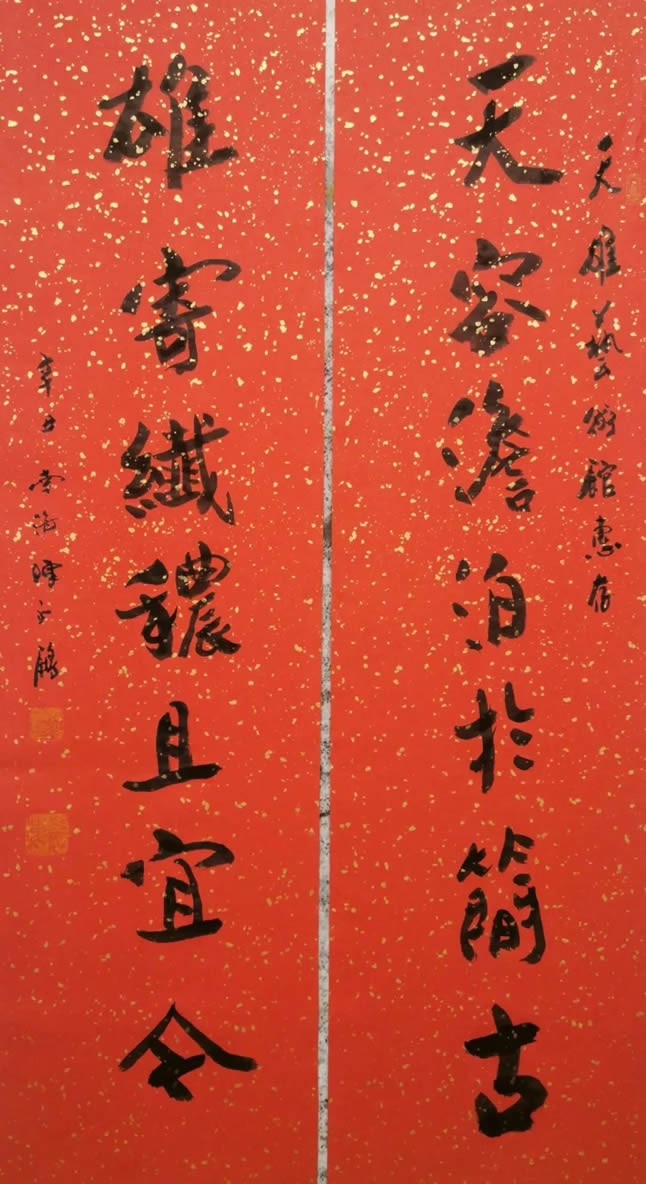 天雄藝術館惠存
天容澹泊於簡古
雄寄纖穠且宜今
辛丑南海陳永鵬